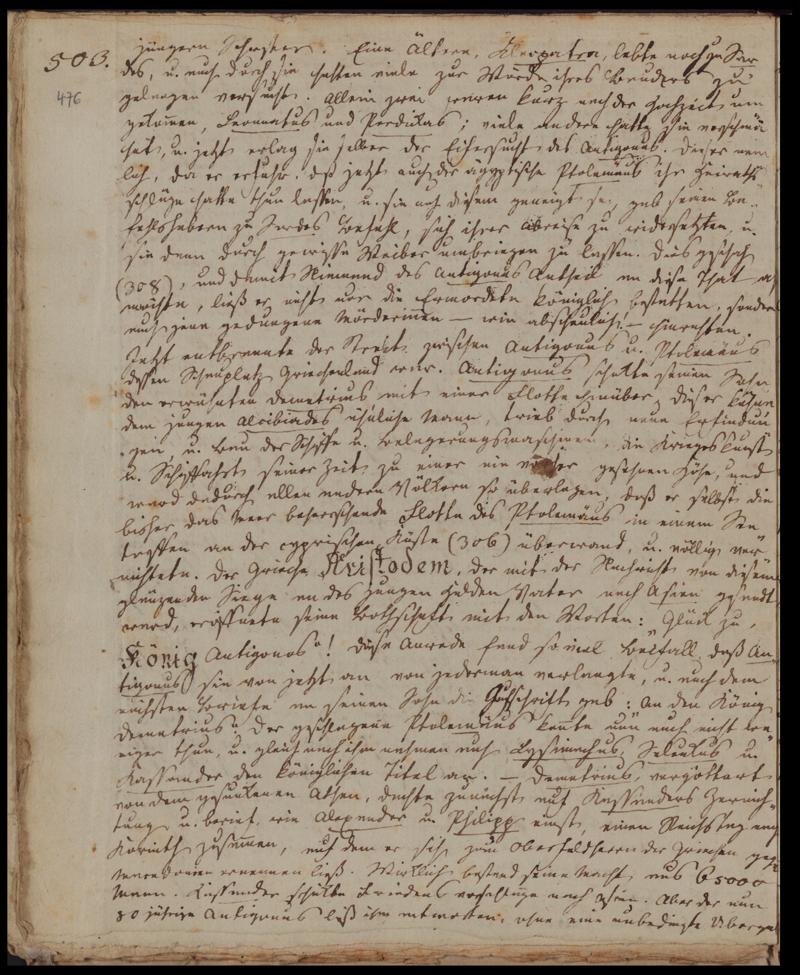 503.
476
jüngern Schwester. Eine Ältere, Kleopatra, lebte noch zu Sar
des, u. auch durch sie hatten viele zur Würde ihres Bruders zu
gelangen versucht. Allein zwei waren kurz nach der Hochzeit um
gekommen, Leonnatus und Perdikas; viele andere hatte sie verschmä
het, u. jetzt erlag sie selber der Eifersucht des Antigonus. Dieser nem
lich, da er erfuhr, daß jetzt auch der ägyptische Ptolemäus ihr Heiraths
schläge hatte thun lassen, u. sie auch diesem geneigt sei, gab seinen Be
fehlshabern zu Sardes Befehl, sich ihrer Abreise zu widersetzten, u.
sie dann durch gewisse Weiber umbringen zu lassen. Dies geschah
(308), und damit Niemand des Antigonus Antheil an diese That
möchte, ließ er nicht nur die Ermordete königlich bestatten, sondern
auch jene gedungene Mörderinnen – wie abscheulich! – hinrichten.
Jetzt entbrannte der Streit zwischen Antigonus u. Ptolemäus
dessen Schauplatz Griechenland war. Antigonus schickte seinen Sohn
den erwähnten Demetrius mit einer Flotte hinüber. Dieser kühne
dem jungen Alcibiades ähnliche Mann, trieb durch neue Erfindun
gen, u. Bau der Schiffe u. Belagerungsmaschinen, die Kriegskunst
u. Schiffahrt seiner Zeit zu einer nie vorher gesehenen Höhe, und
ward dadurch allen andern Völkern so überlegen, daß er selbst die
bisher das Meer beherrschende Flotte des Ptolemäus in einem See
treffen an der cyprischen Küste (306) überwand, u. völlig ver
nichtete. Der Grieche Aristodem, der mit der Nachricht von diesem
glänzenden Siege an des jungen Helden Vater nach Asien gesandt
ward, eröffnete seine Bothschaft mit den Worten: „Glück zu,
König Antigonos“! Diese Anrede fand so viel Beifall, daß An
tigonus sie von jetzt an von jederman verlangte, u. auch dem
nächsten Briefe an seinen Sohn die Aufschrift gab: „An den König
Demetrius“. Der geschlagene Ptolemäus konnte nun auch nicht we
niger thun, u. gleich nach ihm nahmen auch Lysimachus, Seleukus u.
Kassander den königlichen Titel an. – Demetrius, vergöttert
von dem gesunkenen Athen, dachte zunächst auf Kassanders Vernich
tung, u. berief, wie Alexander u. Philipp einst, einen Reichstag nach
Korinth zusammen, auf dem er sich zum Oberfeldherrn der Griechen gegen
Macedonien ernennen ließ. Wirklich bestand seine Macht aus 65000
Mann. Kassander schickte Friedens vorschläge nach Asien. Aber der nun
80 jährige Antigonus ließ ihm antworten, ohne eine unbedingte Überga